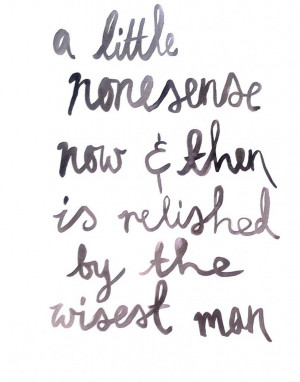 a little
nonesense
now & then
is relished
by the
wisest man